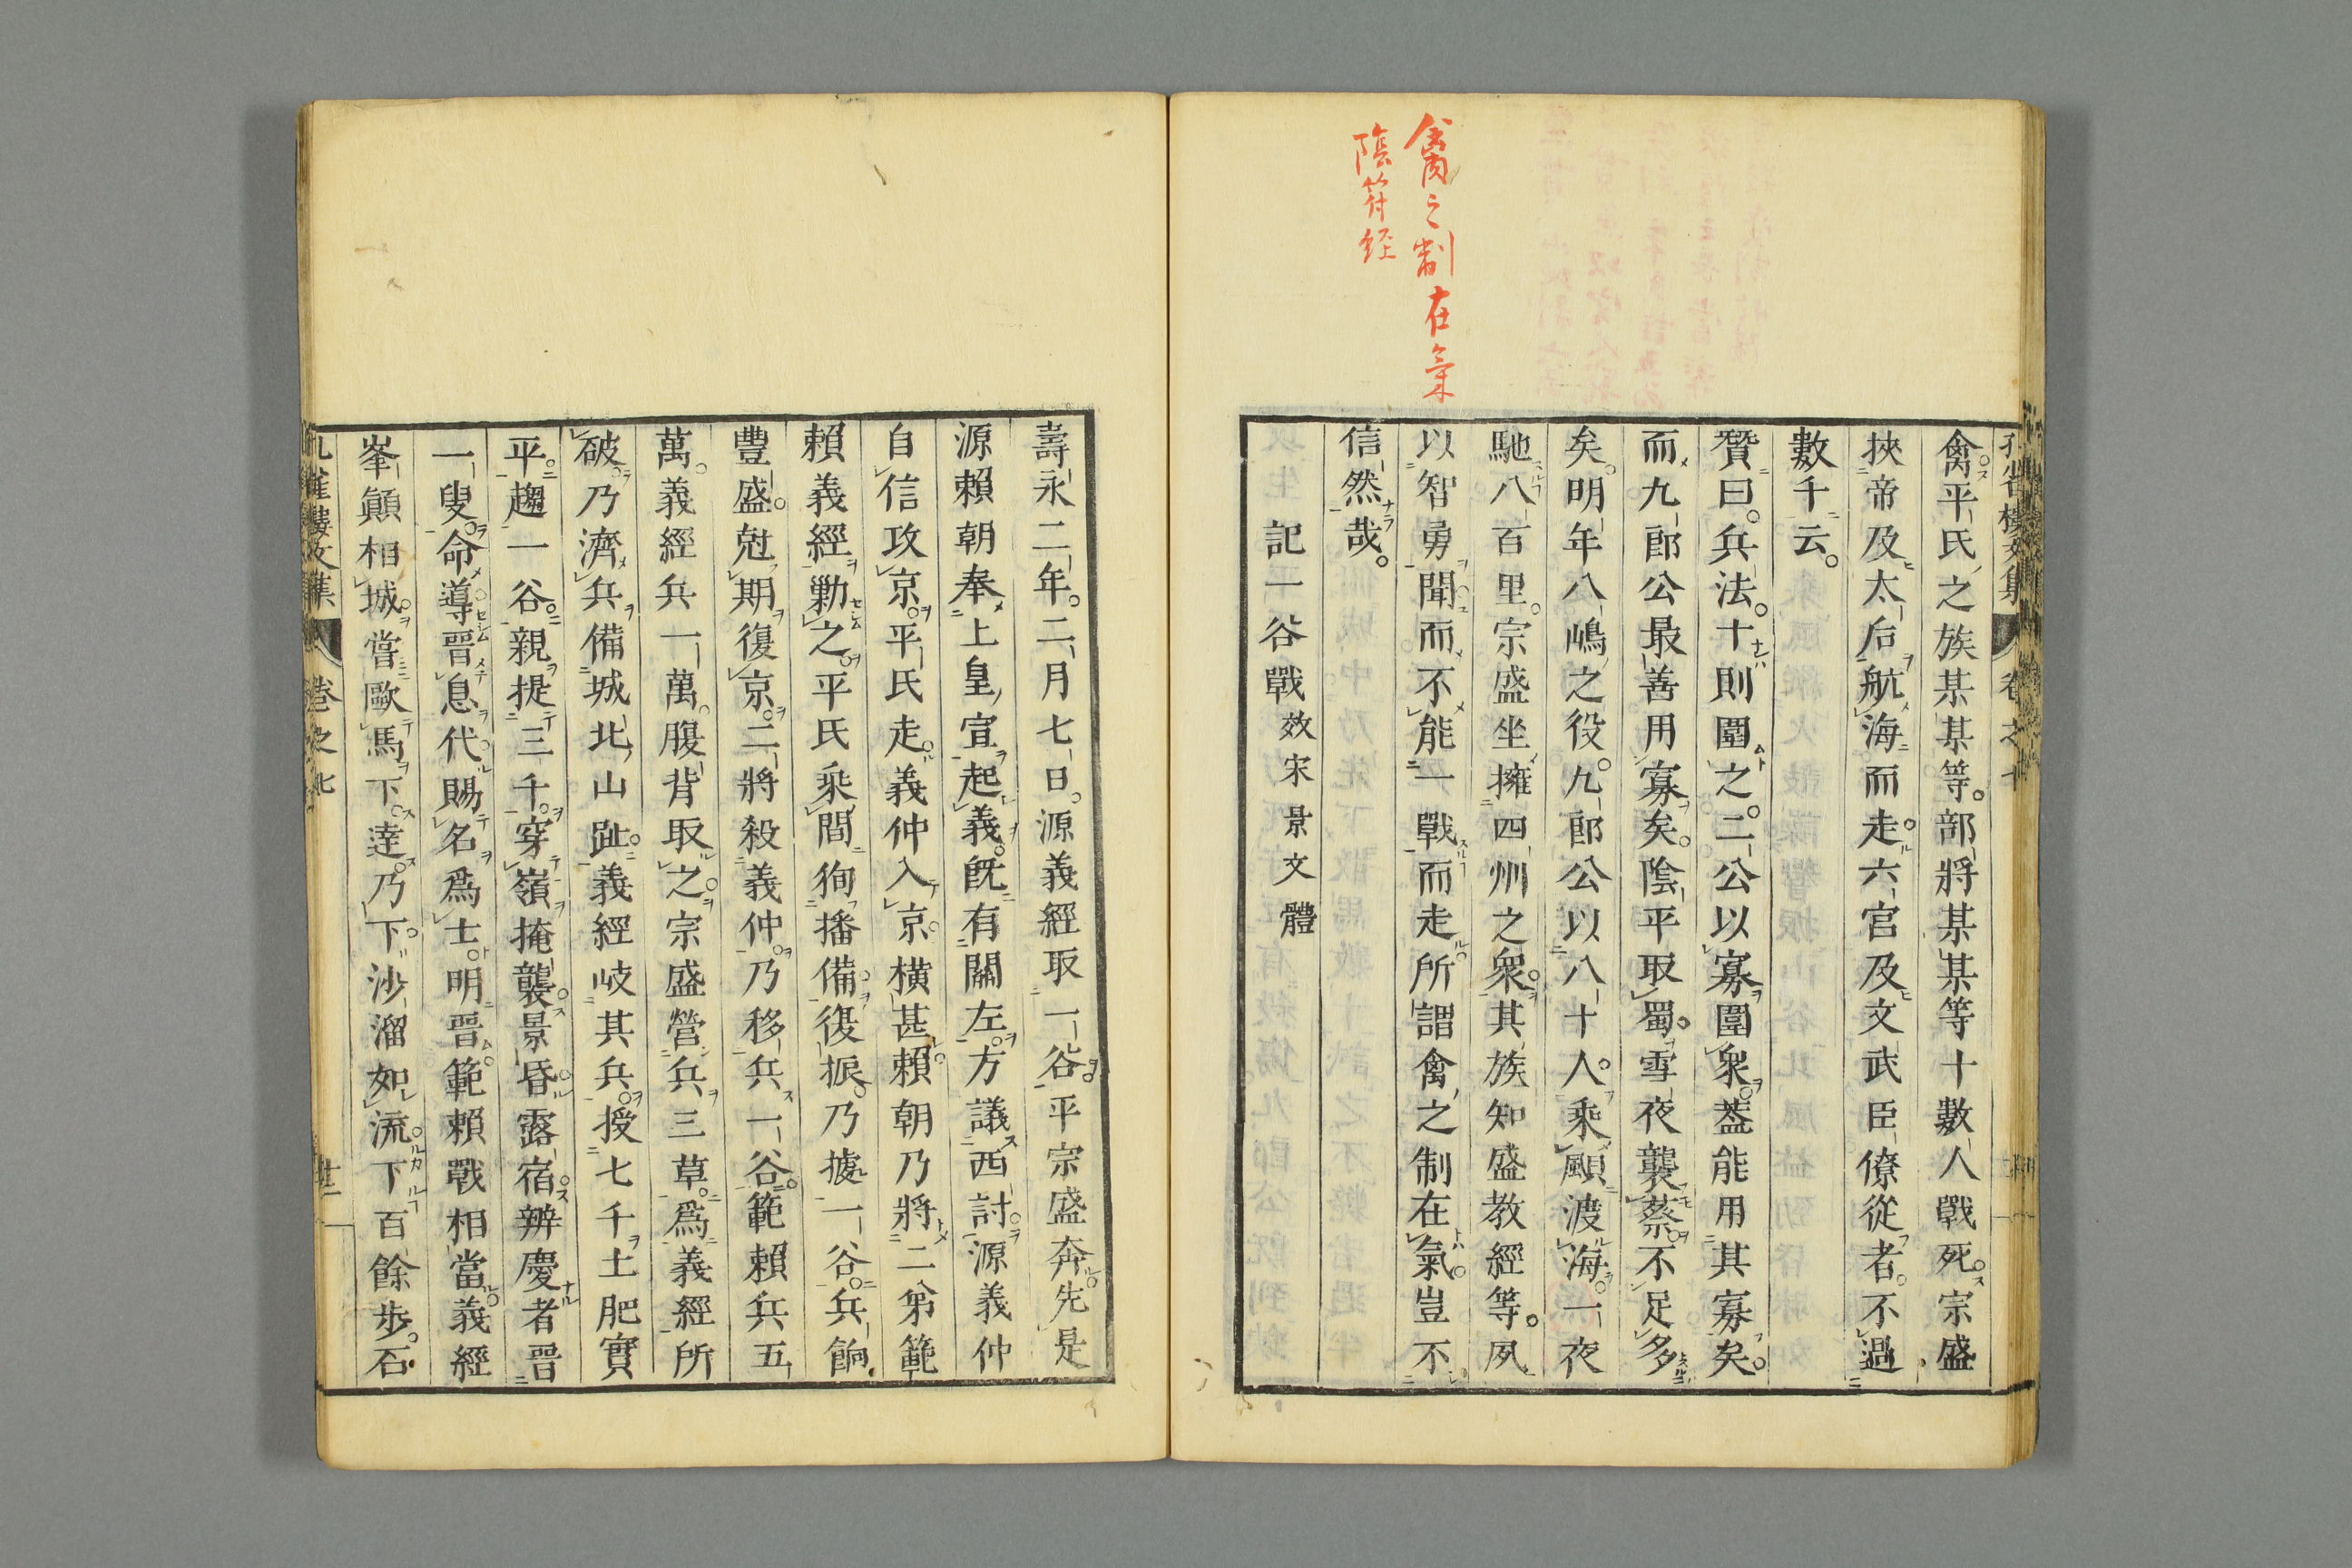 禽之制在氣
陰符經
禽平氏之族某某等部將某某等十數人戰死宗盛
挾帝及太后航海而走六宮及文武臣僚從者不過
數千云
贊曰兵法十則圍之二公以寡圍衆葢能用其寡矣
而九郎公最善用寡矣陰平取蜀雪夜襲蔡不足多
矣明年八嶋之役九郎公以八十人乘颶渡海一夜
馳八百里宗盛坐擁四州之衆其族知盛教經等夙
以智勇聞而不能一戰而走所謂禽之制在氣豈不
信然哉
記一谷戰效宋景文體
壽永二年二月七日源義經取一谷平宗盛奔先是
源賴朝奉上皇宣起義旣有關左方議西討源義仲
自信攻京平氏走義仲入京橫甚賴朝乃將二弟範
賴義經勦之平氏乘間徇播備復振乃據一谷兵餉
豐盛尅期復京二將殺義仲乃移兵一谷範賴兵五
萬義經兵一萬腹背取之宗盛營兵三草爲義經所
破乃濟兵備城北山趾義經岐其兵授七千土肥實
平趨一谷親提三千穿嶺掩襲景昏露宿辨慶者晋
一叟命導晋息代賜名爲士明晋範賴戰相當義經
峯顚相城嘗歐馬下達乃下沙溜如流下百餘步石
孔雀樓文集 卷之